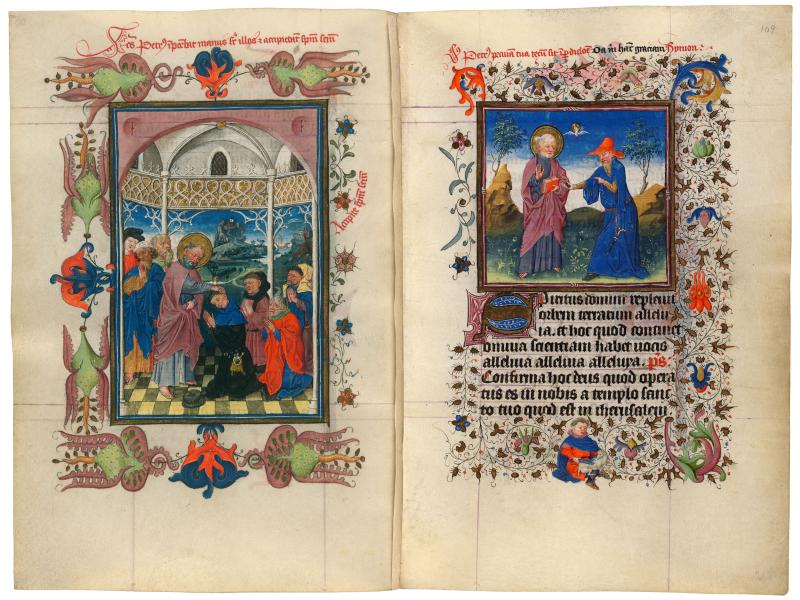 manus illos accipiebant spm scm
Accipite spm scm
109
tua sit Da hanc graciam Symon
Spiritus domini repleuit
orbem terrarum allelu
ia. et hoc quod continet
omnia scienciam habet uocis
alleluia alleluia alleluya. ps.
Confirma hoc deus quod opera
tus es in nobis a templo sanc
to tuo quod est in iherusalem